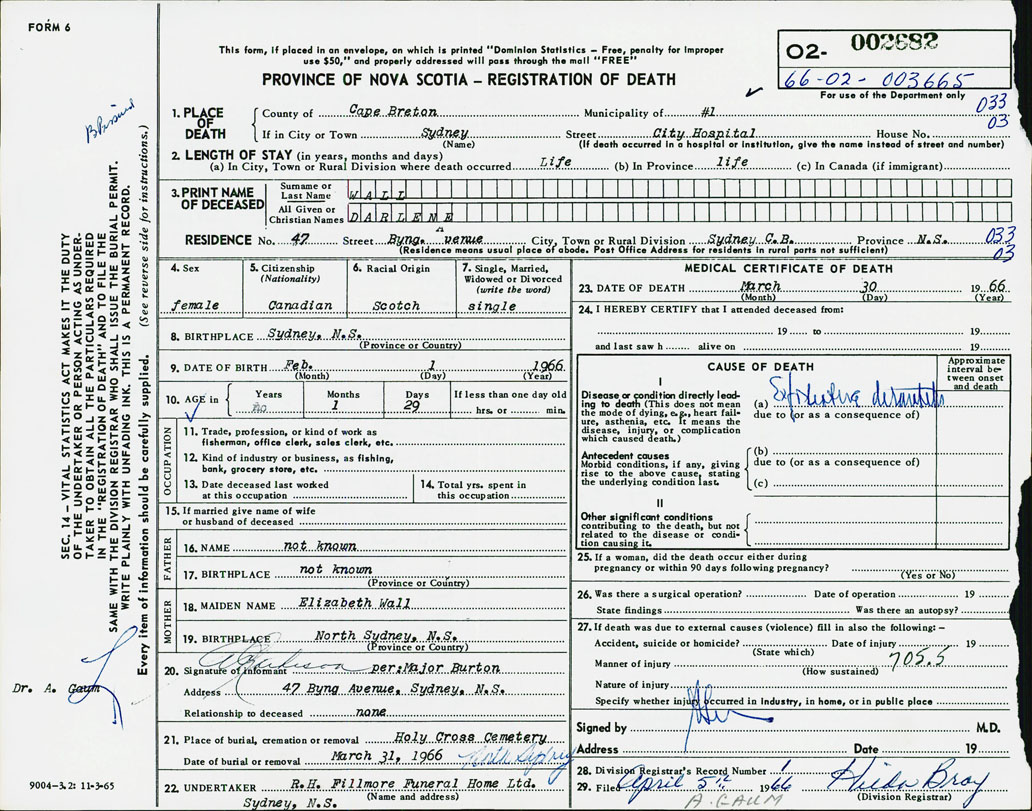 FORM 6
This form, if placed in an envelope, on which is printed "Dominion Statistics – Free, penalty for improper
use $50," and properly addressed will pass through the mail "FREE"
PROVINCE OF NOVA SCOTIA – REGISTRATION OF DEATH
O2- 002682
66-02-003665
For use of the Department only
033
03
1. PLACE OF DEATH
County of Cape Breton Municipality of #1
If in City or Town Sydney Street City Hospital House No.
(Name) (If death occurred in a hospital or institution, give the name instead of street and number)
2. LENGTH OF STAY (in years, months and days)
(a) In City, Town or Rural Division where death occurred Life (b) In Province life (c) In Canada (if immigrant)
3. PRINT NAME OF DECEASED
Surname or Last Name WALL
All Given or Christian Names DARLENE
RESIDENCE No. 47 Street Byng. Avenue City, Town or Rural Division Sydney C.B. Province N.S.
(Residence means usual place of abode. Post Office Address for residents in rural parts not sufficient)
033
03
4. Sex
female
5. Citizenship
(Nationality)
Canadian
6. Racial Origin
Scotch
7. Single, Married,
Widowed or Divorced
(write the word)
single
8. BIRTHPLACE Sydney, N.S.
(Province or Country)
9. DATE OF BIRTH Feb. 1 1966
(Month) (Day) (Year)
10. AGE in
Years no
Months 1
Days 29
If less than one day old
hrs. or min.
OCCUPATION
11. Trade, profession, or kind of work as
fisherman, office clerk, sales clerk, etc.
12. Kind of industry or business, as fishing,
bank, grocery store, etc.
13. Date deceased last worked
at this occupation
14. Total yrs. spent in
this occupation
15. If married give name of wife
or husband of deceased
FATHER
16. NAME not known
17. BIRTHPLACE not known
(Province or Country)
MOTHER
18. MAIDEN NAME Elizabeth Wall
19. BIRTHPLACE North Sydney, N.S.
(Province or Country)
20. Signature of informant per:Major Burton
Address 47 Byng Avenue, Sydney, N.S.
Relationship to deceased none
21. Place of burial, cremation or removal Holy Cross Cemetery
Date of burial or removal March 31, 1966 North Sydney
22. UNDERTAKER R.H. Fillmore Funeral Home Ltd.
(Name and address)
Sydney, N.S.
MEDICAL CERTIFICATE OF DEATH
23. DATE OF DEATH March 30 1966
(Month) (Day) (Year)
24. I HEREBY CERTIFY that I attended deceased from:
19 to 19
and last saw h alive on 19
CAUSE OF DEATH
Approximate
interval be-
tween onset
and death
I
Disease or condition directly lead-
ing to death (This does not mean
the mode of dying, e.g., heart fail-
ure, asthenia, etc. It means the
disease, injury, or complication
which caused death.)
(a) Exfoliating dermatitis
due to (or as a consequence of)
Antecedent causes
Morbid conditions, if any, giving
rise to the above cause, stating
the underlying condition last.
(b)
due to (or as a consequence of)
(c)
II
Other significant conditions
contributing to the death, but not
related to the disease or condi-
tion causing it.
25. If a woman, did the death occur either during
pregnancy or within 90 days following pregnancy?
(Yes or No)
26. Was there a surgical operation? Date of operation 19
State findings Was there an autopsy?
27. If death was due to external causes (violence) fill in also the following: –
Accident, suicide or homicide? Date of injury 19
(State which)
Manner of injury 705.5
(How sustained)
Nature of injury
Specify whether injury occurred in industry, in home, or in public place
Signed by M.D.
Address Date 19
28. Division Registrar's Record Number 1
29. Filed April 5th 1966 Hilda Bray
(Division Registrar)
A. GAUM
SEC. 14 – VITAL STATISTICS ACT MAKES IT THE DUTY
OF THE UNDERTAKER OR PERSON ACTING AS UNDER-
TAKER TO OBTAIN ALL THE PARTICULARS REQUIRED
IN THE "REGISTRATION OF DEATH" AND TO FILE THE
SAME WITH THE DIVISION REGISTRAR WHO SHALL ISSUE THE BURIAL PERMIT.
WRITE PLAINLY WITH UNFADING INK. THIS IS A PERMANENT RECORD.
Every item of information should be carefully supplied. (See reverse side for instructions.)
Dr. A. Gaum
9004-3.2: 11-3-65